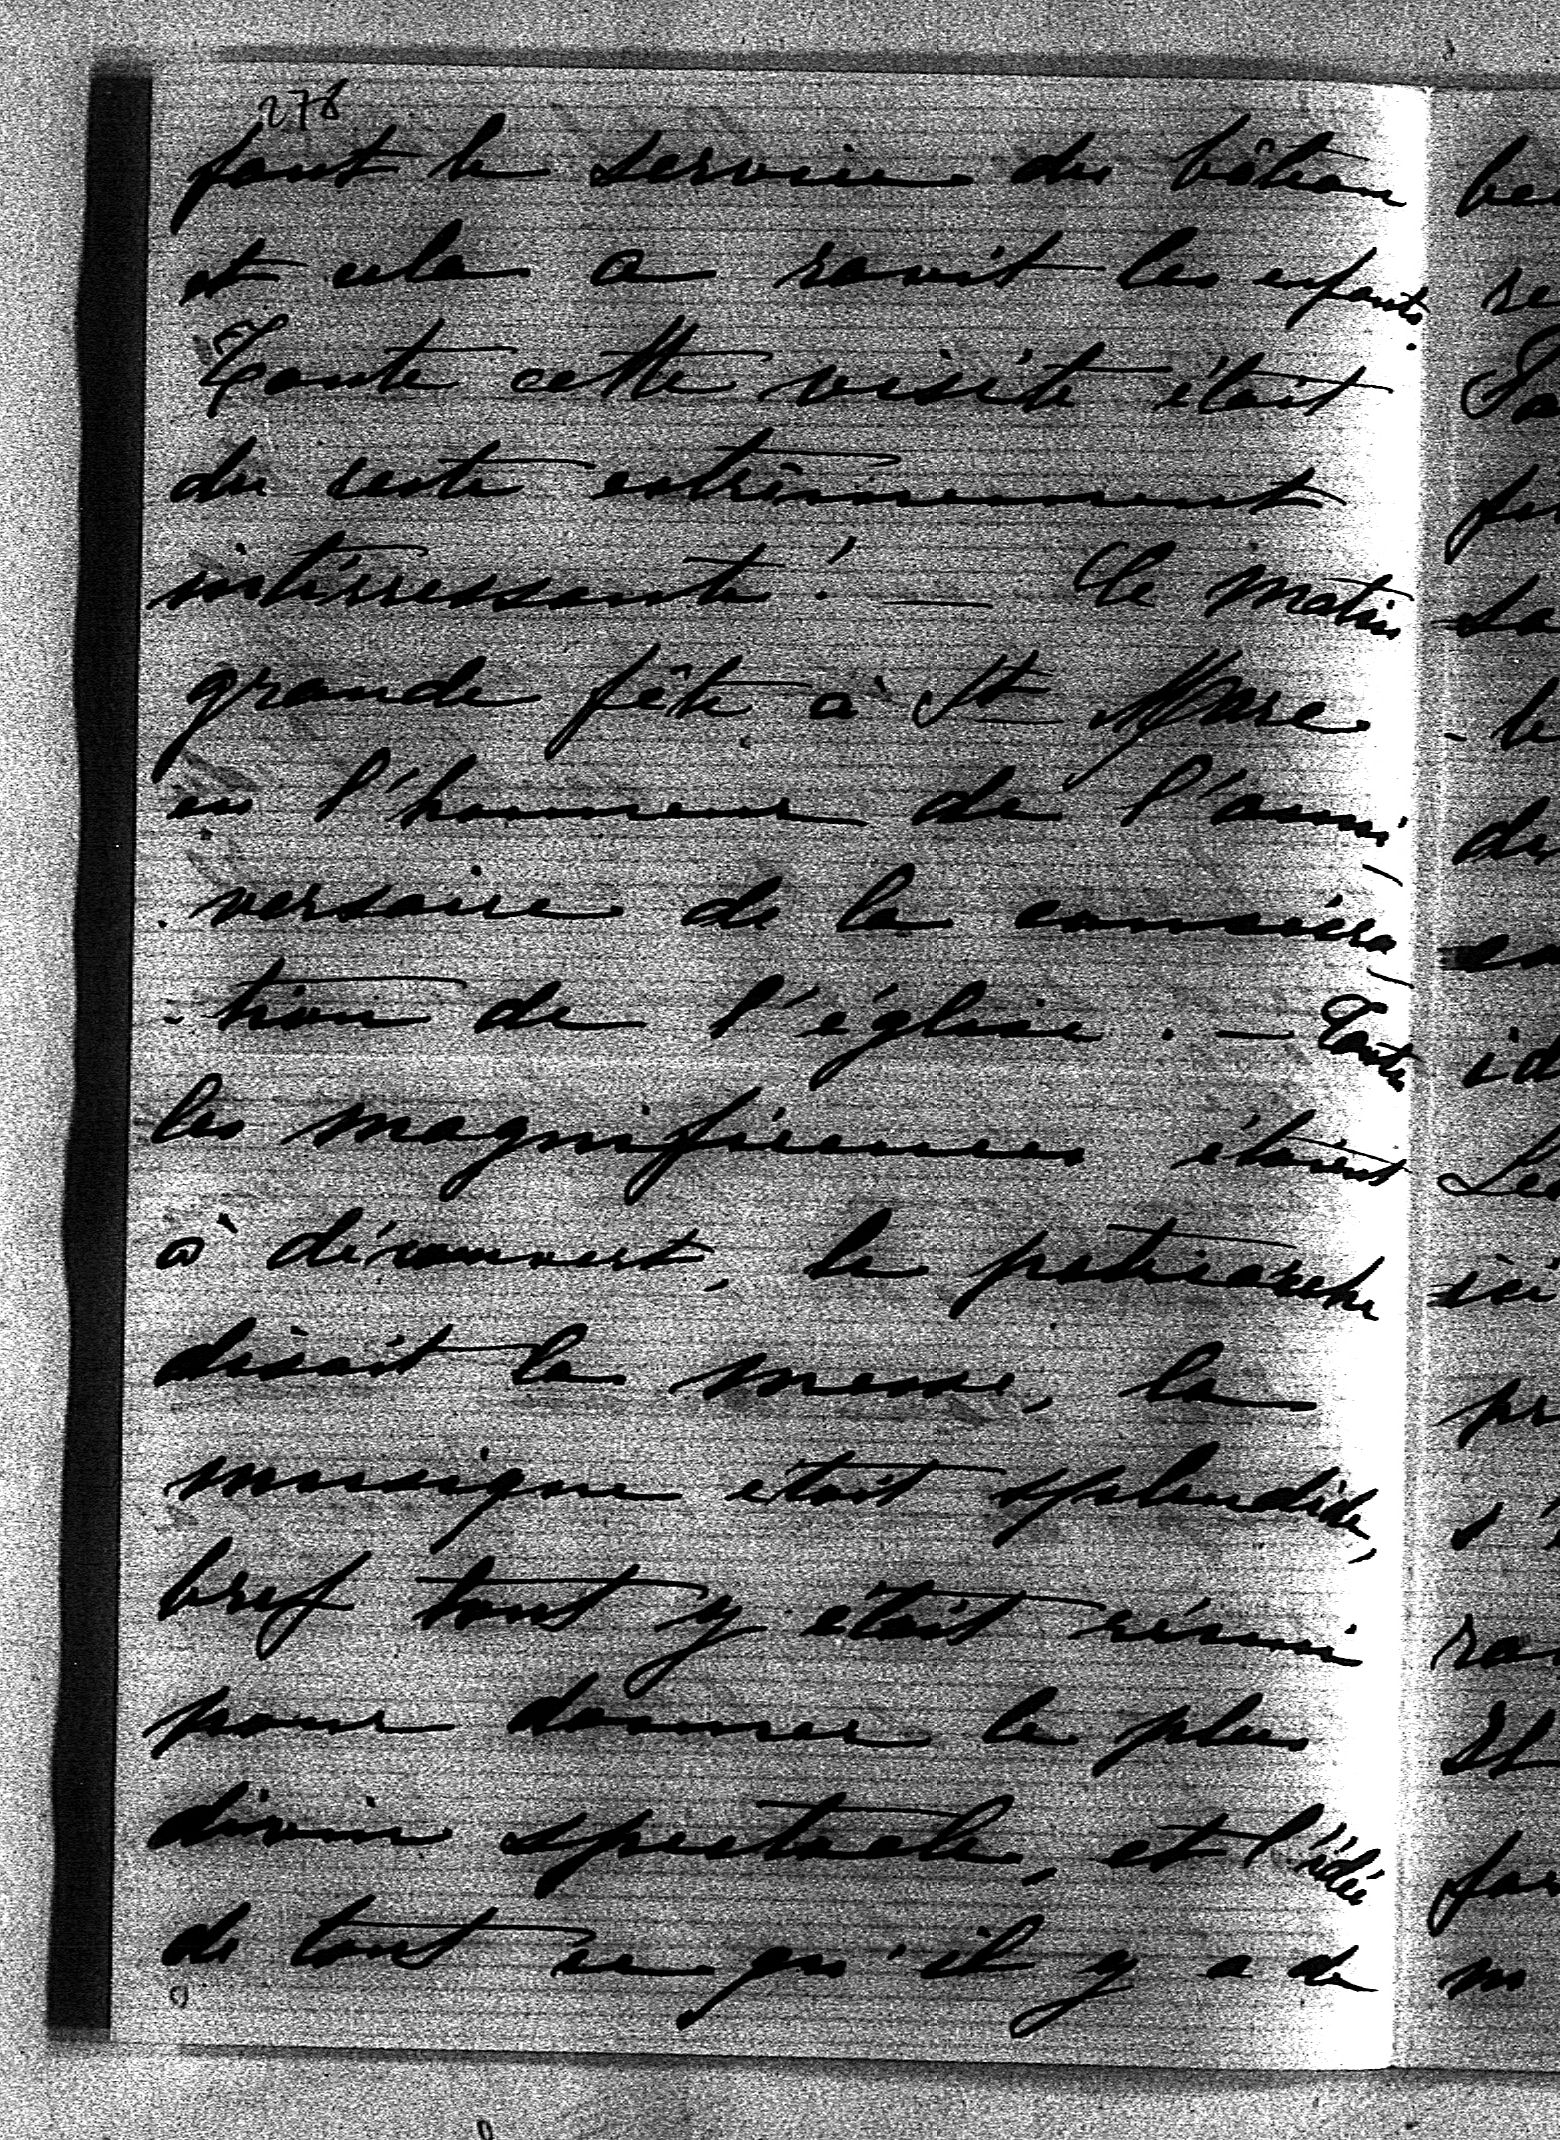 276
font le service du bâteau
et cela a ravit les enfants.
Toute cette visite était
du reste extrêmement
intérressante! — Ce matin
grande fête à St Marc
en l'honneur de l'anni-
versaire de la consécra-
-tion de l'église. — Toutes
les magnificences étaient
à découvert, le patriarche
disait la messe, la
musique était splendide,
bref tout y était réuni
pour donner le plus
divin spectacle, et l'idée
de tout ce qu'il y a de